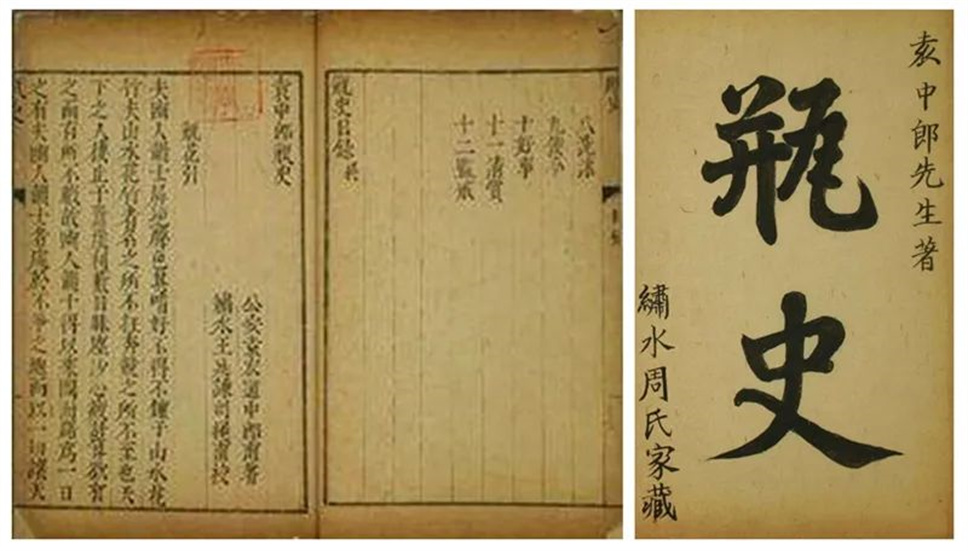 袁中郎先生著
瓶史
繡水周氏家藏
八洗沐
九使令
十好事
十一清賞
十二監戒
瓶史目錄終
袁中郎瓶史
公安袁宏道中郎甫著
繡水王 校
瓶花引
夫幽人韻士屏絕聲色其嗜好不得不鍾于山水花
竹夫山水花竹者名之所不在奔競之所不至也天
下之人棲止于囂崖利藪目眯塵沙心疲計算欲有
之而有所不暇故幽人韻士得以乘間而踞為一日
之有夫幽人韻士者處於不爭之地而以一切讓天